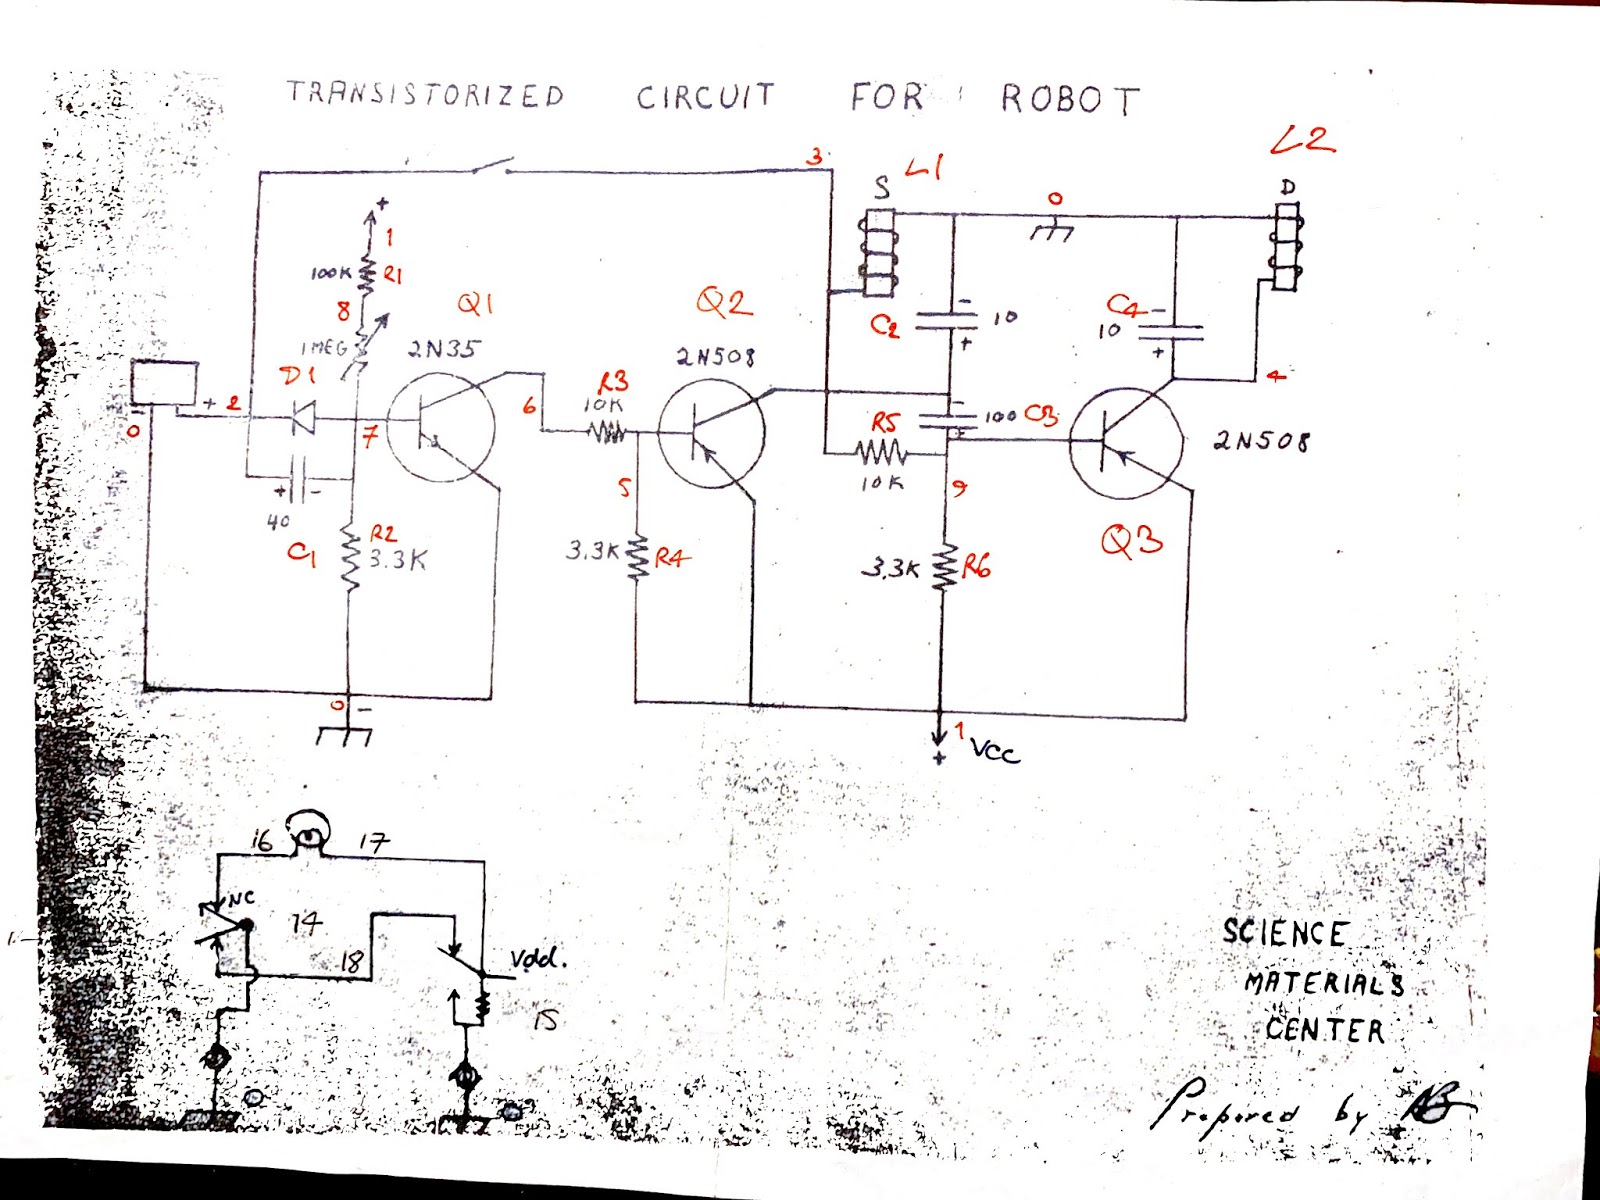 TRANSISTORIZED CIRCUIT FOR ROBOT
L2
3
L1
S
0
D
+
1
100K R1
8
Q1
Q2
C2
10
C4
10
-
+
-
+
1MEG
2N35
2N508
D1
R3
10K
4
+
2
6
-
100 C3
+
R5
2N508
0
7
10K
+
-
5
9
40
C1
R2
3.3K
3.3K
R4
3.3K
R6
Q3
0
-
1
+
VCC
16
17
NC
14
18
Vdd.
15
SCIENCE
MATERIALS
CENTER
Prepared by AB